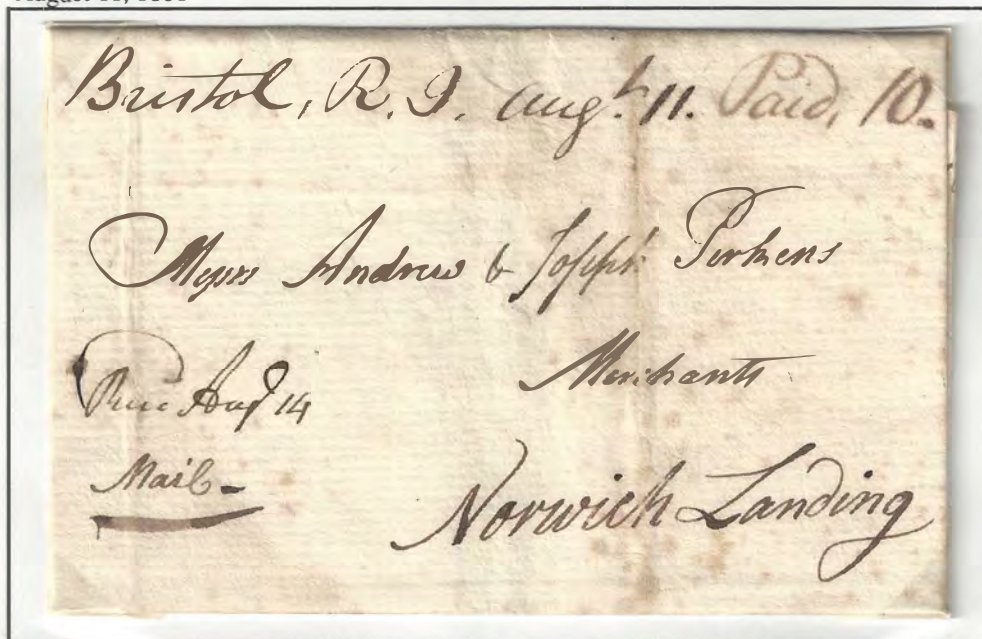 Bristol, R. I. Augt. 11. Paid, 10.
Messrs Andrew & Joseph Perkens
Merchants
Aug 14
Mail
Norwich Landing